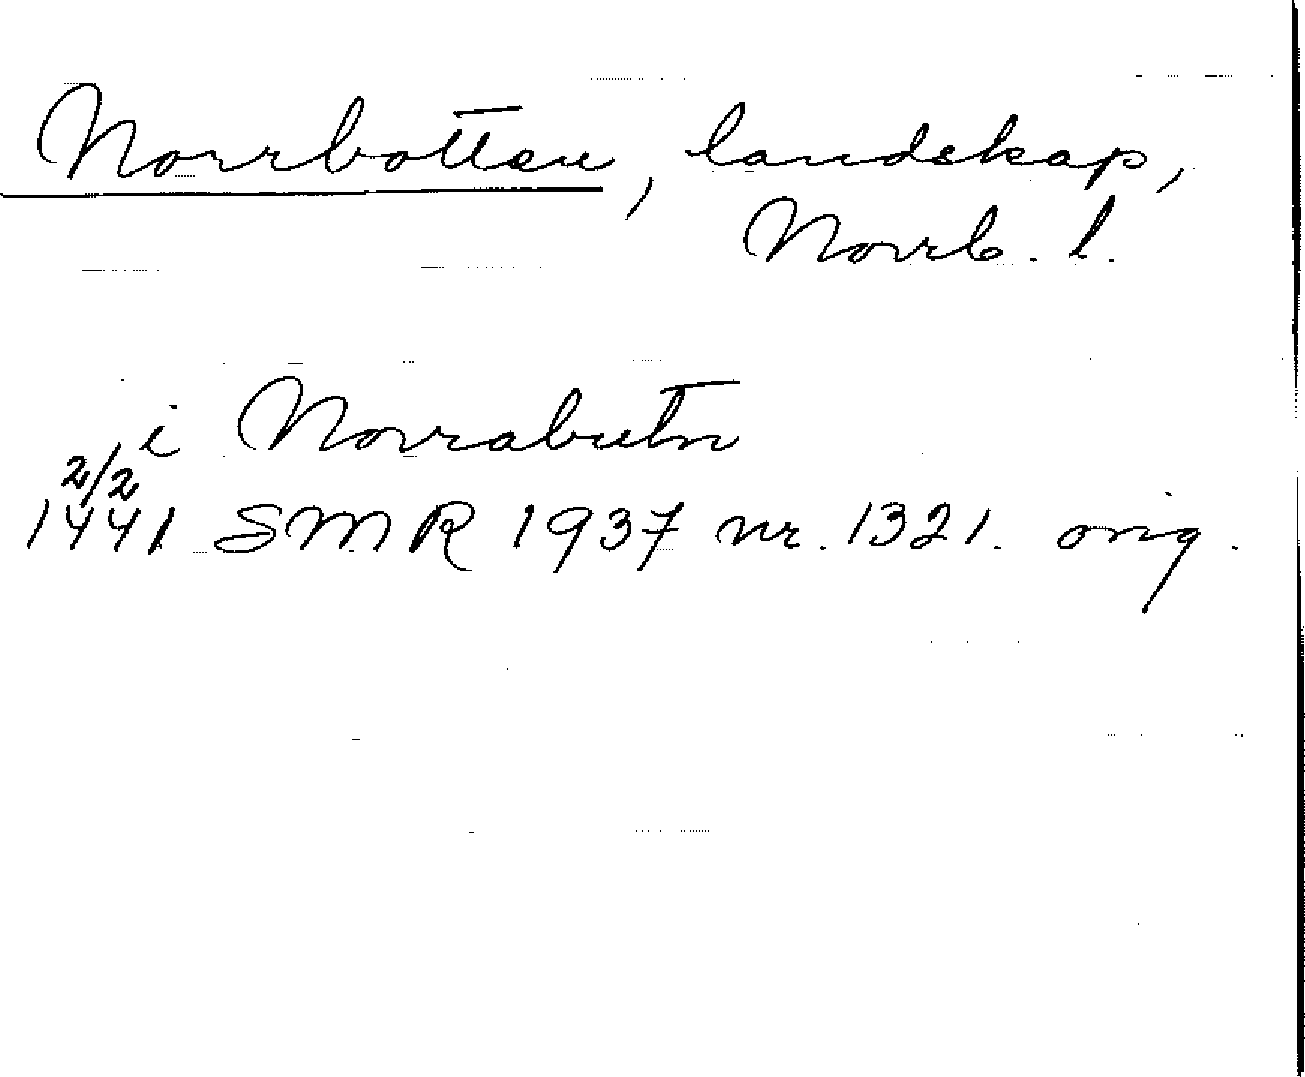 Norrbotten, landskap,
Norrb. l.
i Norrabutn
2/2
1441 SMR 1937 nr. 1321. orig.